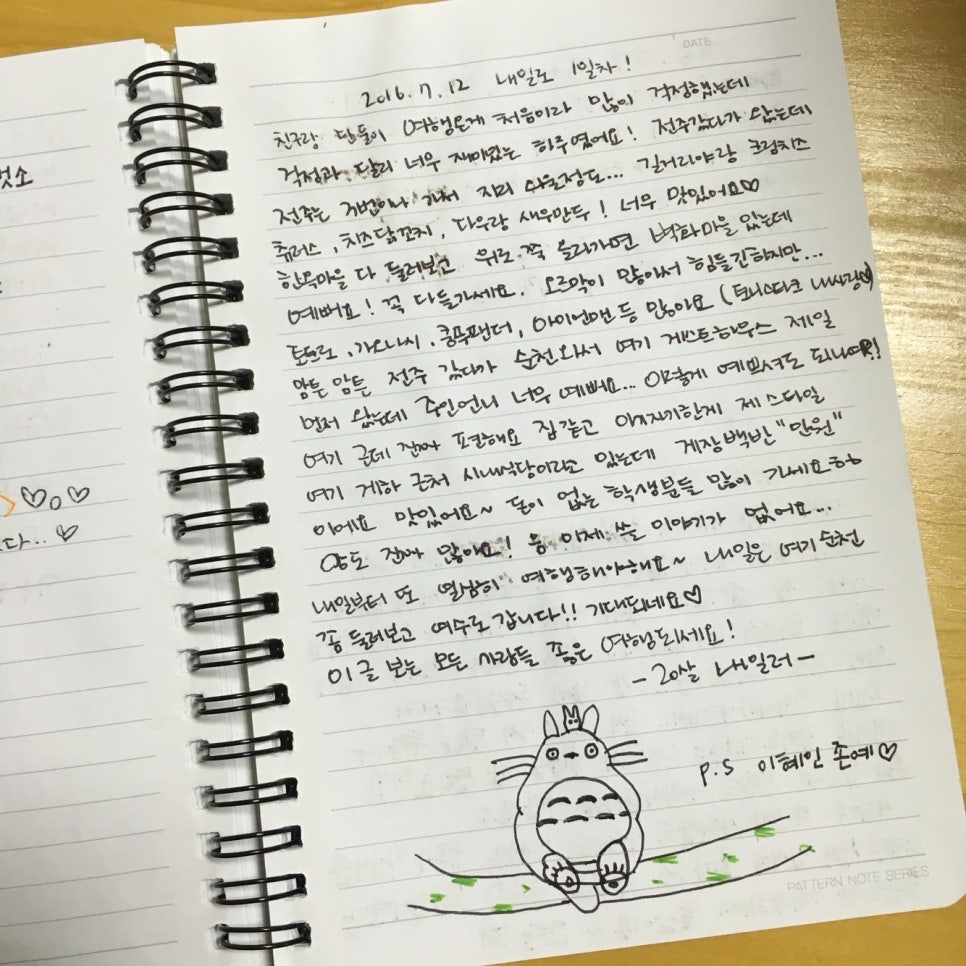 DATE
2016.7.12 내일로 1일차!
친구랑 단둘이 여행온게 처음이라 많이 걱정했는데
걱정과 달리 너무 재미있는 하루였어요! 전주갔다가 왔는데
전주는 가서 지리 정도... 길거리야랑 크림치즈
츄러스, 치즈닭꼬치, 다우랑 새우만두! 너무 맛있어요♡
한옥마을 다 둘러보고 위로 쭉 올라가면 벽화마을 있는데
예뻐요! 꼭 다들가세요. 오르막이 많아서 힘들긴하지만...
토토로, 가오나시, 쿵푸팬더, 아이언맨 등 많아요 (토니스타크 내사랑♡)
암튼 암튼 전주 갔다가 순천와서 여기 게스트하우스 제일
먼저 왔는데 주인언니 너무 예뻐요... 이렇게 예쁘셔도 되나여?!
여기 근데 진짜 편해요 집같고 아기자기한게 제 스타일
여기 게하 근처 시내식당이라고 있는데 게장백반 "만원"
이에요 맛있어요~ 돈이 없는 학생분들 많이 가세요
양도 진짜 많아요! 음 이제 쓸 이야기가 없어요...
내일부터 또 열심히 여행해야해요~ 내일은 여기 순천
좀 둘러보고 여수로 갑니다!! 기대되네요♡
이 글 보는 모든 사람들 좋은 여행되세요!
- 20살 내일러 -
P.S 이혜인 존예♡
PATTERN NOTE SERIES